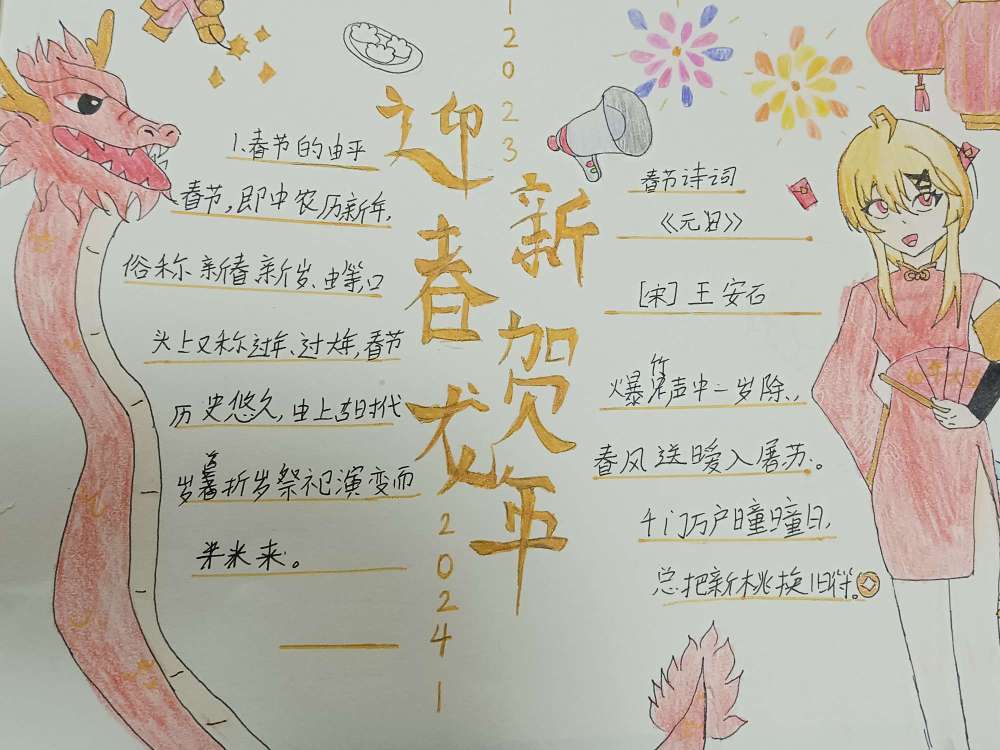 2023
迎春龙
新贺年
2024
1.春节的由乎
春节,即中农历新年,
俗称新春、新岁、由等,口
头上又称过年、过大年,春节
历史悠久,由上古时代
岁首祈岁祭祀演变而
来。
春节诗词
《元日》
[宋]王安石
爆竹声中一岁除,
春风送暖入屠苏。
千门万户曈曈日,
总把新桃换旧符。